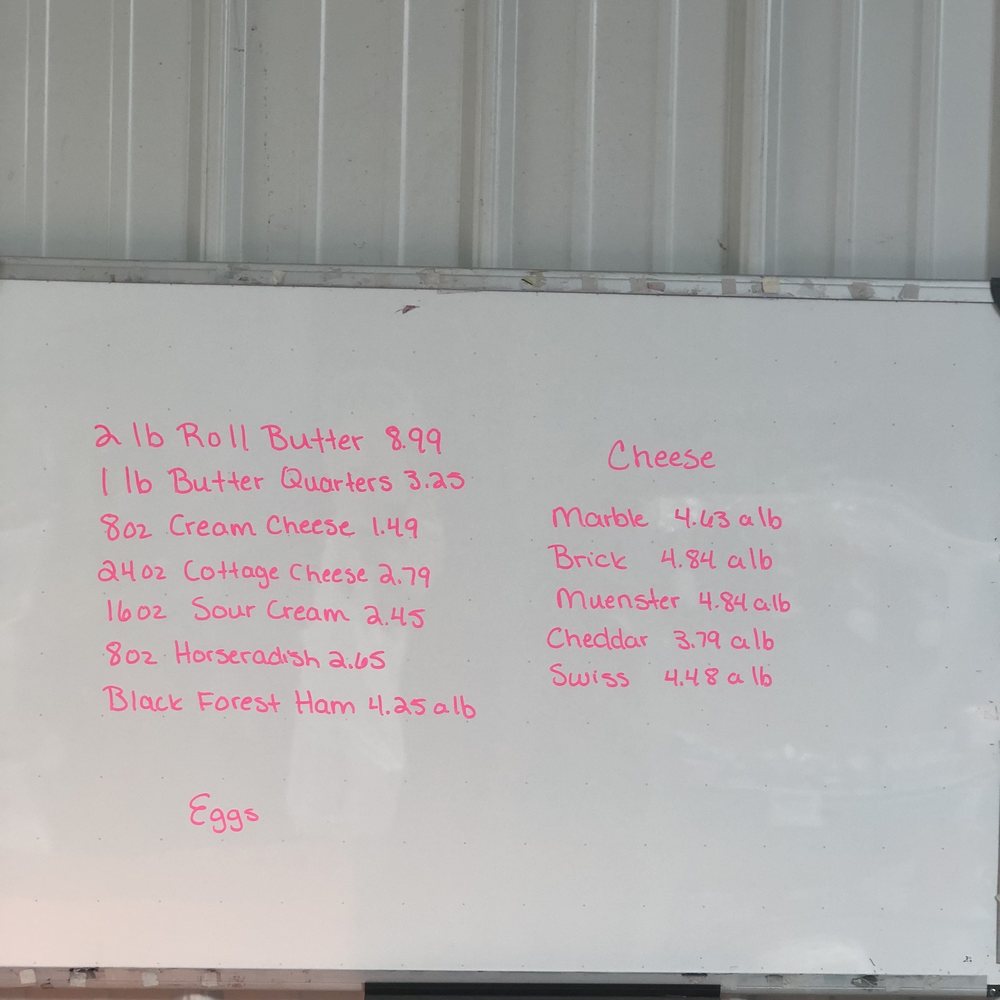 2 lb Roll Butter 8.99
1 lb Butter Quarters 3.25
8oz Cream Cheese 1.49
24oz Cottage Cheese 2.79
16oz Sour Cream 2.45
8oz Horseradish 2.65
Black Forest Ham 4.25 a lb
Eggs
Cheese
Marble 4.63 a lb
Brick 4.84 a lb
Muenster 4.84 a lb
Cheddar 3.79 a lb
Swiss 4.48 a lb